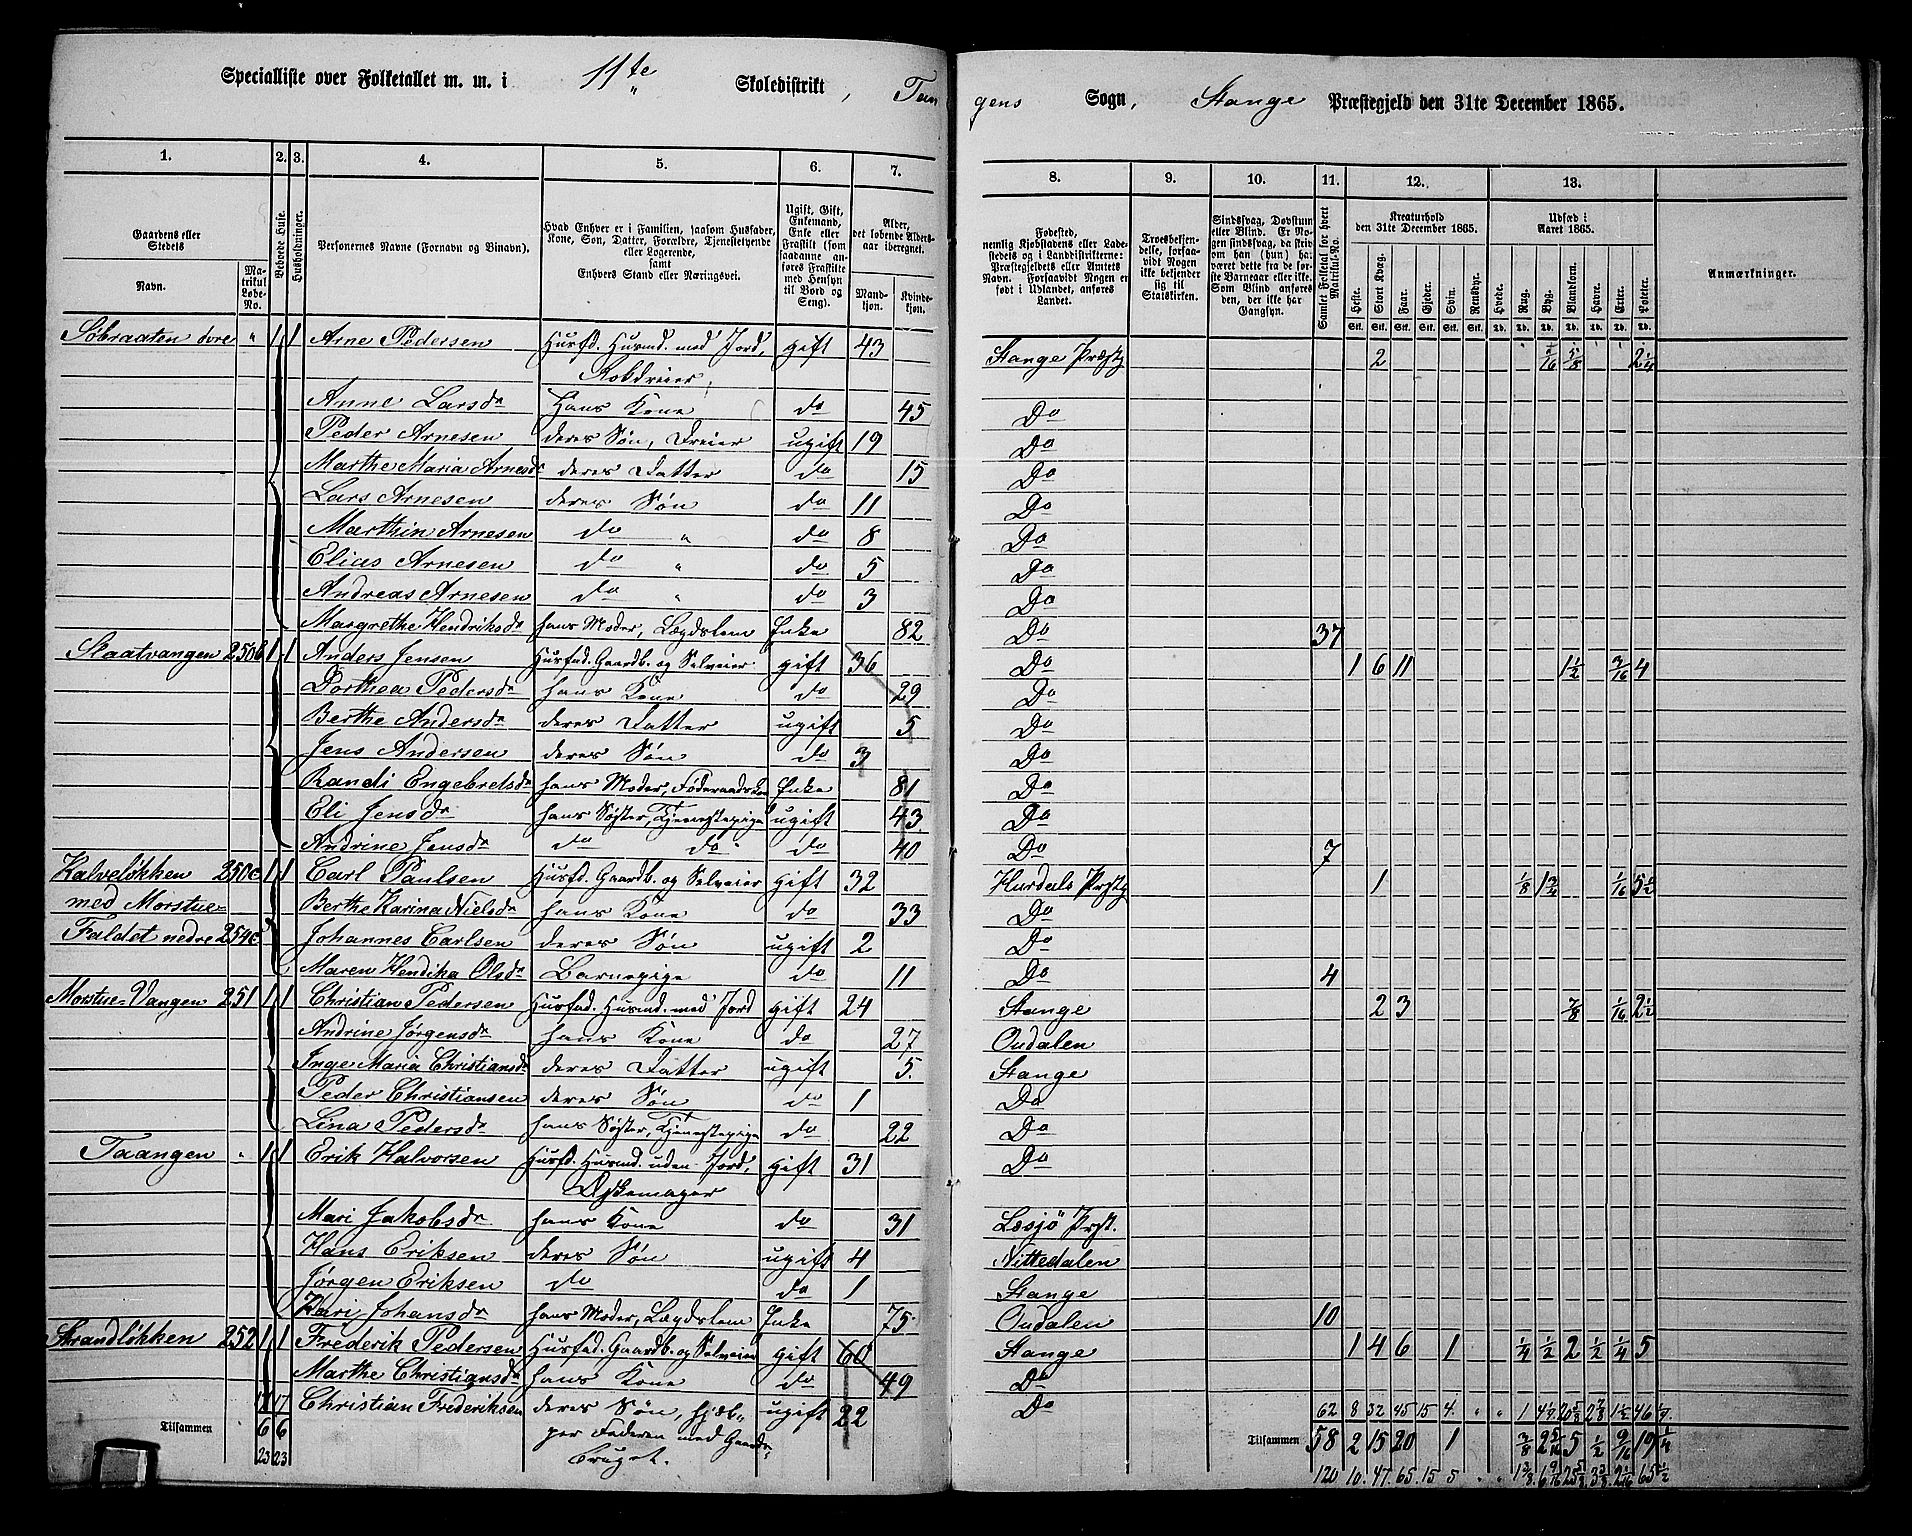 Specialliste over Folketallet m. m. i 11te Skoledistrikt, Tangens Sogn, Stange Præstegjeld den 31te December 1865.
1. 2. 3. 4. 5. 6. 7. 8. 9. 10. 11. 12. 13.
Gaardens eller Stedets
Navn.
Matrikul Løbe-No.
Beboede Huse.
Husholdninger.
Personernes Navne (Fornavn og Binavn).
Hvad Enhver er i Familien, saasom Husfader, Kone, Søn, Datter, Forældre, Tjenestetyende eller Logerende, samt Enhvers Stand eller Næringsvei.
Ugift, Gift, Enkemand, Enke eller Fraskilt (som saadanne anføres Fraskilte med Hensyn til Bord og Seng).
Alder, det løbende Aldersaar iberegnet.
Mandkjøn. Kvindekjøn.
Fødested, nemlig Kjøbstadens eller Ladestedets og i Landdistrikterne: Præstegjeldets eller Amtets Navn. Forsaavidt Nogen er født i Udlandet, anføres Landet.
Troesbekjendelse, forsaavidt Nogen ikke bekjender sig til Statskirken.
Sindssvag, Døvstum eller Blind. Er Nogen sindssvag, da skriv om han (hun) har været dette fra de første Barneaar eller ei. Som Blind anføres den, der ikke har Gangsyn.
Samlet Folketal for hvert Matrikul-No.
Kreaturhold den 31te December 1865.
Heste. Stort Kvæg. Faar. Gjeder. Svin. Rensdyr.
Udsæd i Aaret 1865.
Hvede. Rug. Byg. Blandkorn. Havre. Erter. Poteter.
Anmærkninger.
Søbraaten øvre " 1 1 Arne Pedersen Husfd. Husmd. med Jord, gift 43 Stange Præstg 2 5/8 2 1/4
Rokdreier
Anne Larsdr Hans Kone do 45 Do
Peder Arnesen deres Søn, Dreier ugift 19 Do
Marthe Maria Arnesdr deres Datter do 15 Do
Lars Arnesen deres Søn do 11 Do
Marthin Arnesen do " do 8 Do
Elias Arnesen do " do 5 Do
Andreas Arnesen do " do 3 Do
Margrethe Hendriksdr hans Moder, Lægdslem Enke 82 Do 37
Slaatvangen 250b 1 1 Anders Jensen Husfad. Gaardb. og Selveier gift 36 Do 1 6 11 1 1/2 3/16 4
Dorthea Pedersdr hans Kone do 29 Do
Berthe Andersdr deres Datter ugift 5 Do
Jens Andersen deres Søn do 3 Do
Randi Engebretsdr hans Moder, Føderaadskone Enke 81 Do
Eli Jensdr hans Søster, Tjenestepige ugift 43 Do
Andrine Jensdr do do do 40 Do 7
Kalveløkken 250c 1 1 Carl Paulsen Husfd. Gaardb. og Selveier gift 32 Hurdals Prstg 1 1/8 1 3/4 1/16 5 1/2
med Morstue- Berthe Karina Nielsdr hans Kone do 33 Do
Faldet nedre 254c Johannes Carlsen deres Søn ugift 2 Do
Maren Hendika Olsdr Barnepige do 11 Do 4
Morstue-Vangen 251 1 1 Christian Pedersen Husfad. Husmd. med Jord gift 24 Stange 2 3 7/8 1/16 2 1/2
Andrine Jørgensdr hans Kone do 27 Oudalen
Inge Maria Christiansdr deres Datter ugift 5 Stange
Peder Christiansen deres Søn do 1 Do
Lina Pedersdr hans Søster, Tjenestepige do 22 Do
Taangen " 1 1 Erik Halvorsen Husfd. Husmd. uden Jord, gift 31 Do
Øskemager
Mari Jakobsdr hans Kone do 31 Lesjö Prst.
Hans Eriksen deres Søn ugift 4 Nittedalen
Jørgen Eriksen do do 1 Stange
Kari Johansdr hans Moder, Lægdslem Enke 75 Oudalen 10
Strandløkken 252 1 1 Frederik Pedersen Husfad. Gaardb. og Selveier gift 60 Stange 1 4 6 1 3/4 1/2 2 1/2 1/4 5
Marthe Christiansdr hans Kone do 49 Do
17 17 Christian Frederiksen deres Søn, hjæl- ugift 22 Do 62 8 32 45 15 4 " " 1
Tilsammen 6 6 per Faderen med Gaards- Tilsammen 58 2 15 20 1 3/8 5 1/2 9/16 19 1/4
23 23 bruget. 120 10 47 65 15 5 " " 1 3/8 65 1/2